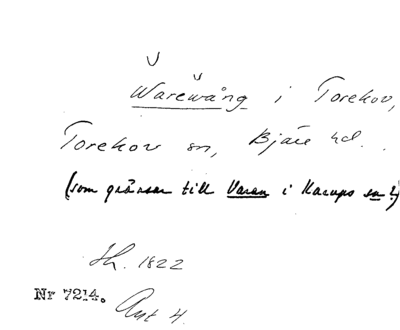 V
Warewång i Torekov,
Torekov sn, Bjäre hd.
(som gränsar till Varan i Karups sn!)
Sk. 1822
Nr 7214.
Ant 4.